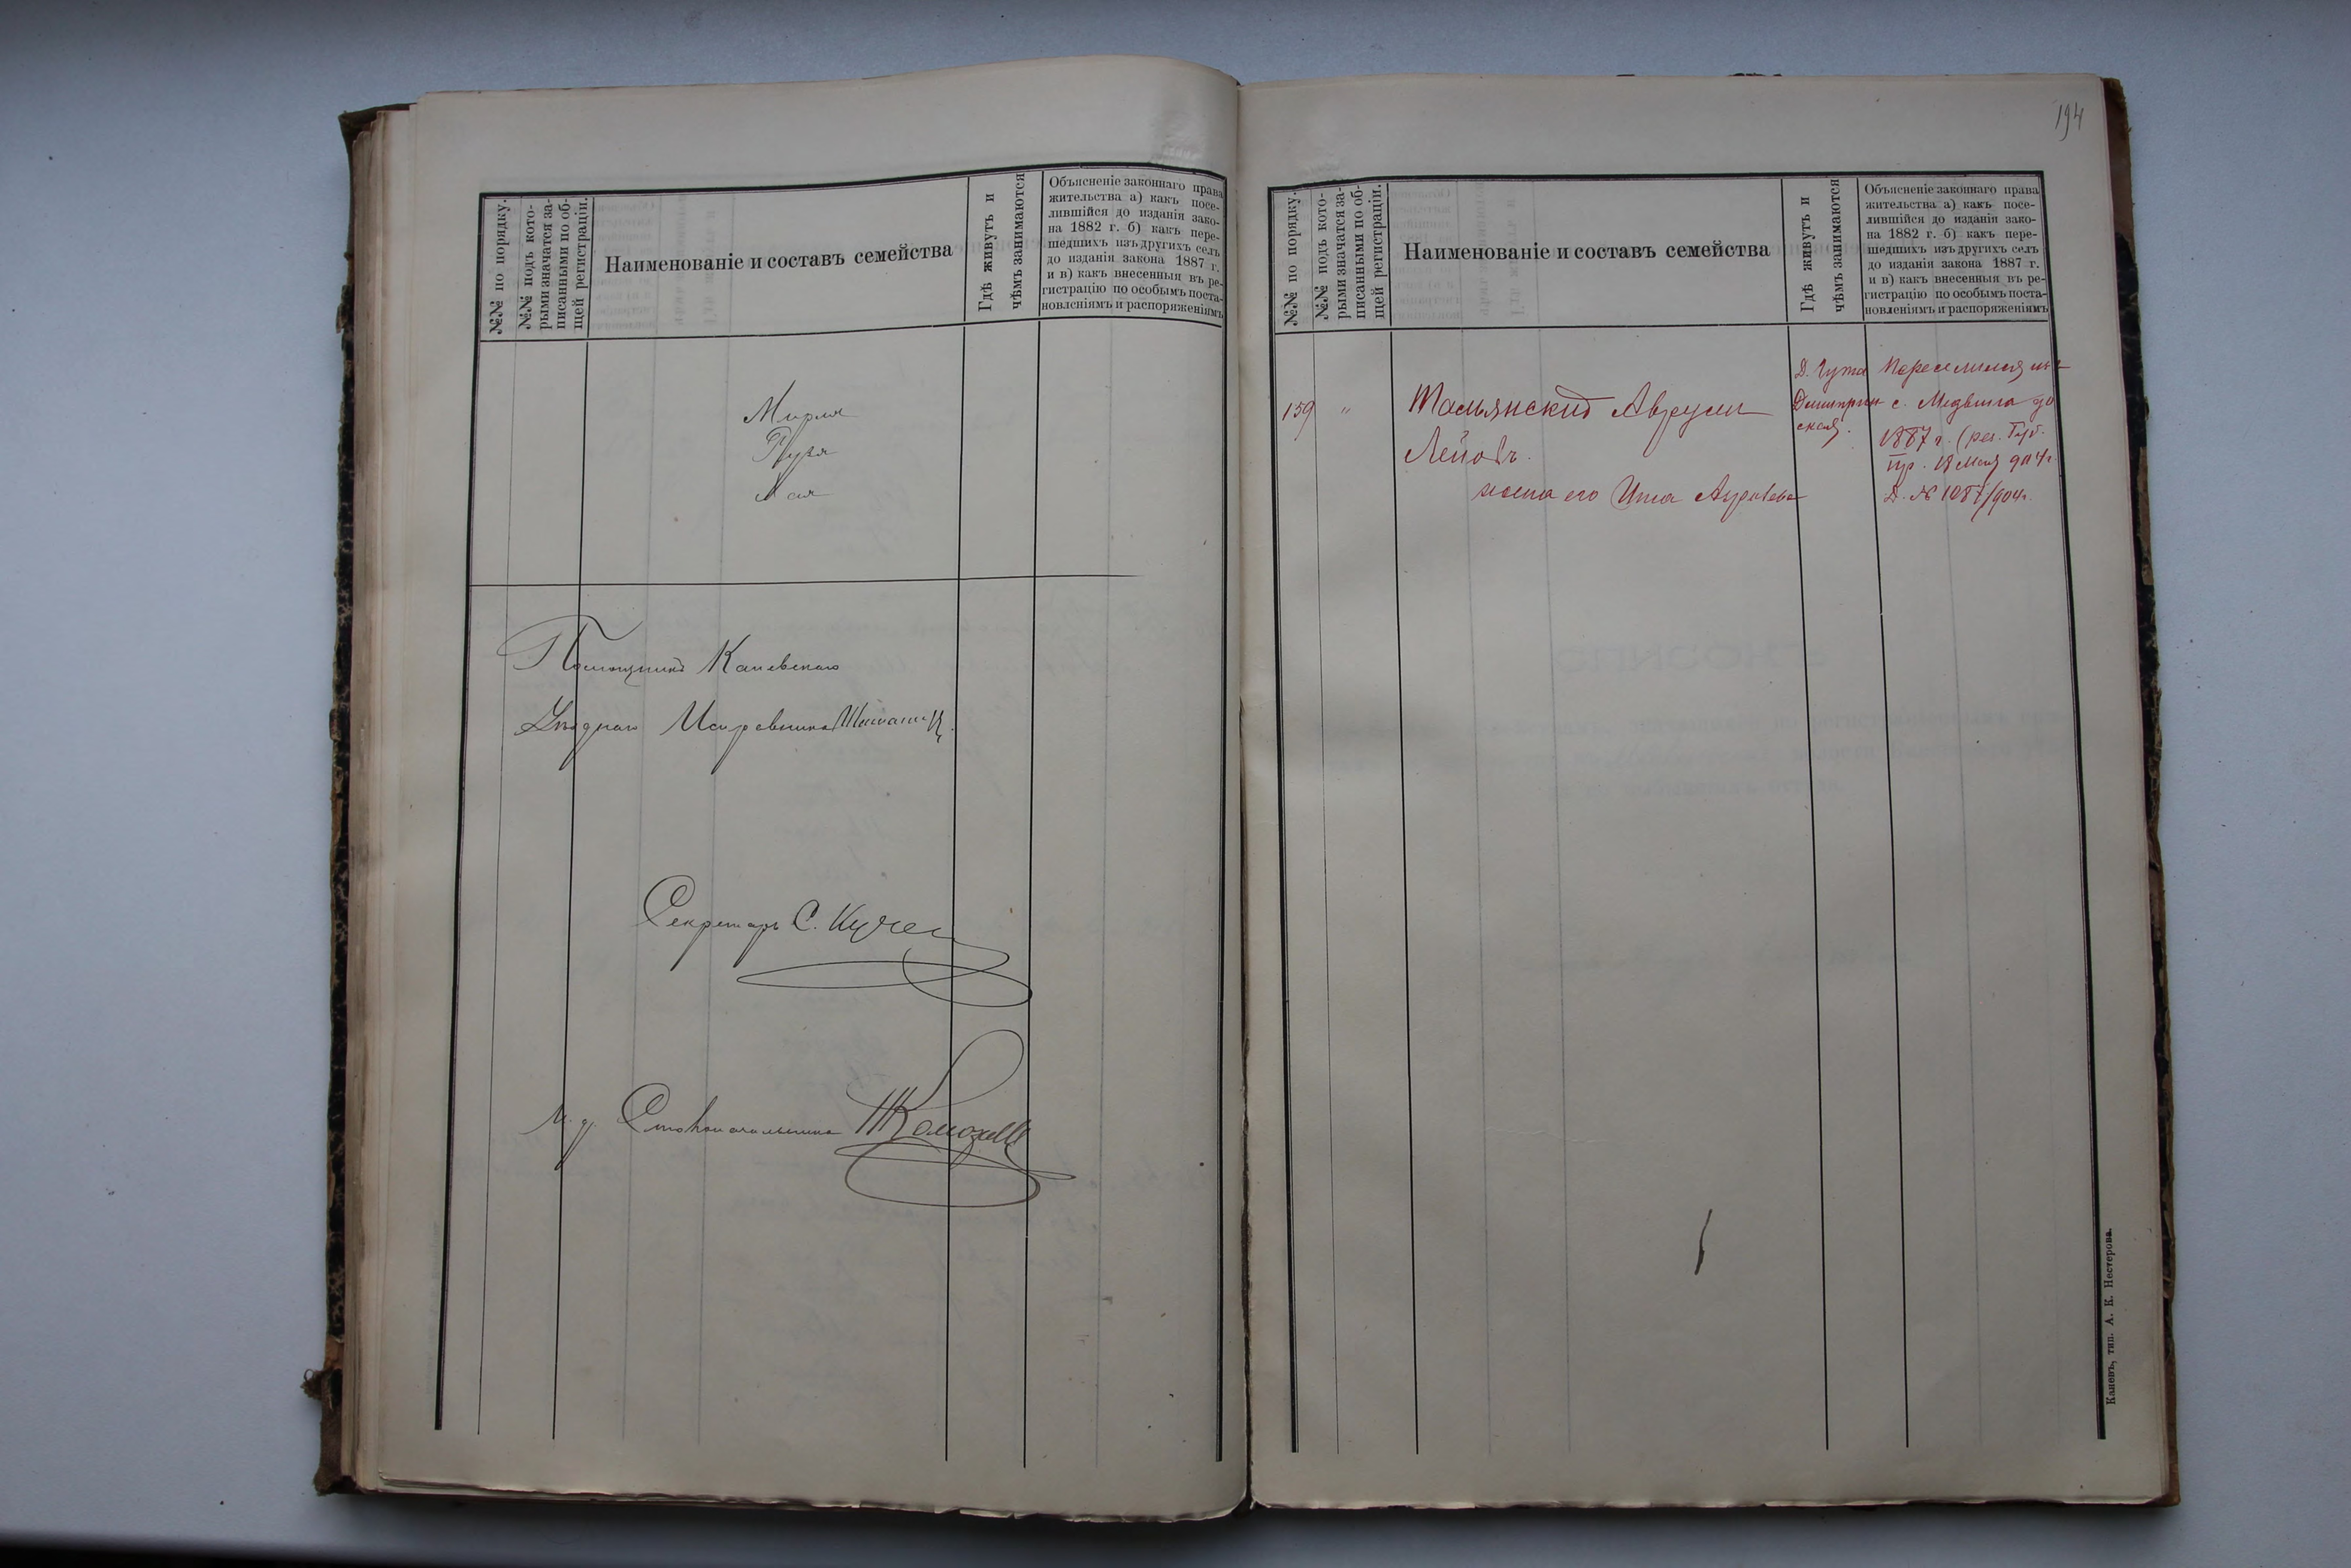 №№ по порядку.
№№ подъ кото-
рыми значатся за-
писанными по об-
щей регистраціи.
Наименованіе и составъ семейства
Гдѣ живутъ и
чѣмъ занимаются
Объясненіе законнаго права
жительства а) какъ посе-
лившійся до изданія зако-
на 1882 г. б) какъ пере-
шедшихъ изъ другихъ селъ
до изданія закона 1887 г.
и в) какъ внесенныя въ ре-
гистрацію по особымъ поста-
новленіямъ и распоряженіямъ
Мирля
Пузя
Помощникъ Каневскаго
Уѣзднаго Исправника
Секретарь С.
И. д. Столоначальника
194
№№ по порядку.
№№ подъ кото-
рыми значатся за-
писанными по об-
щей регистраціи.
Наименованіе и составъ семейства
Гдѣ живутъ и
чѣмъ занимаются
Объясненіе законнаго права
жительства а) какъ посе-
лившійся до изданія зако-
на 1882 г. б) какъ пере-
шедшихъ изъ другихъ селъ
до изданія закона 1887 г.
и в) какъ внесенныя въ ре-
гистрацію по особымъ поста-
новленіямъ и распоряженіямъ
159 " Тальянскій Аврумъ
Лейбовъ.
жена его
Д.
ская.
Переселился изъ
с. Медвина до
1887 г. (рез. Губ.
Пр. 18 Мая 904 г.
Д. № 1087/904 г.
Каневъ, тип. А. К. Нестерова.